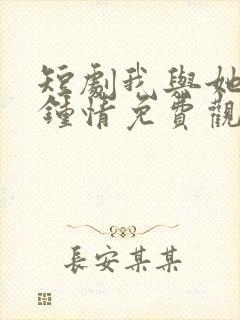 短劇我與她
鍾情免費觀
長安某某